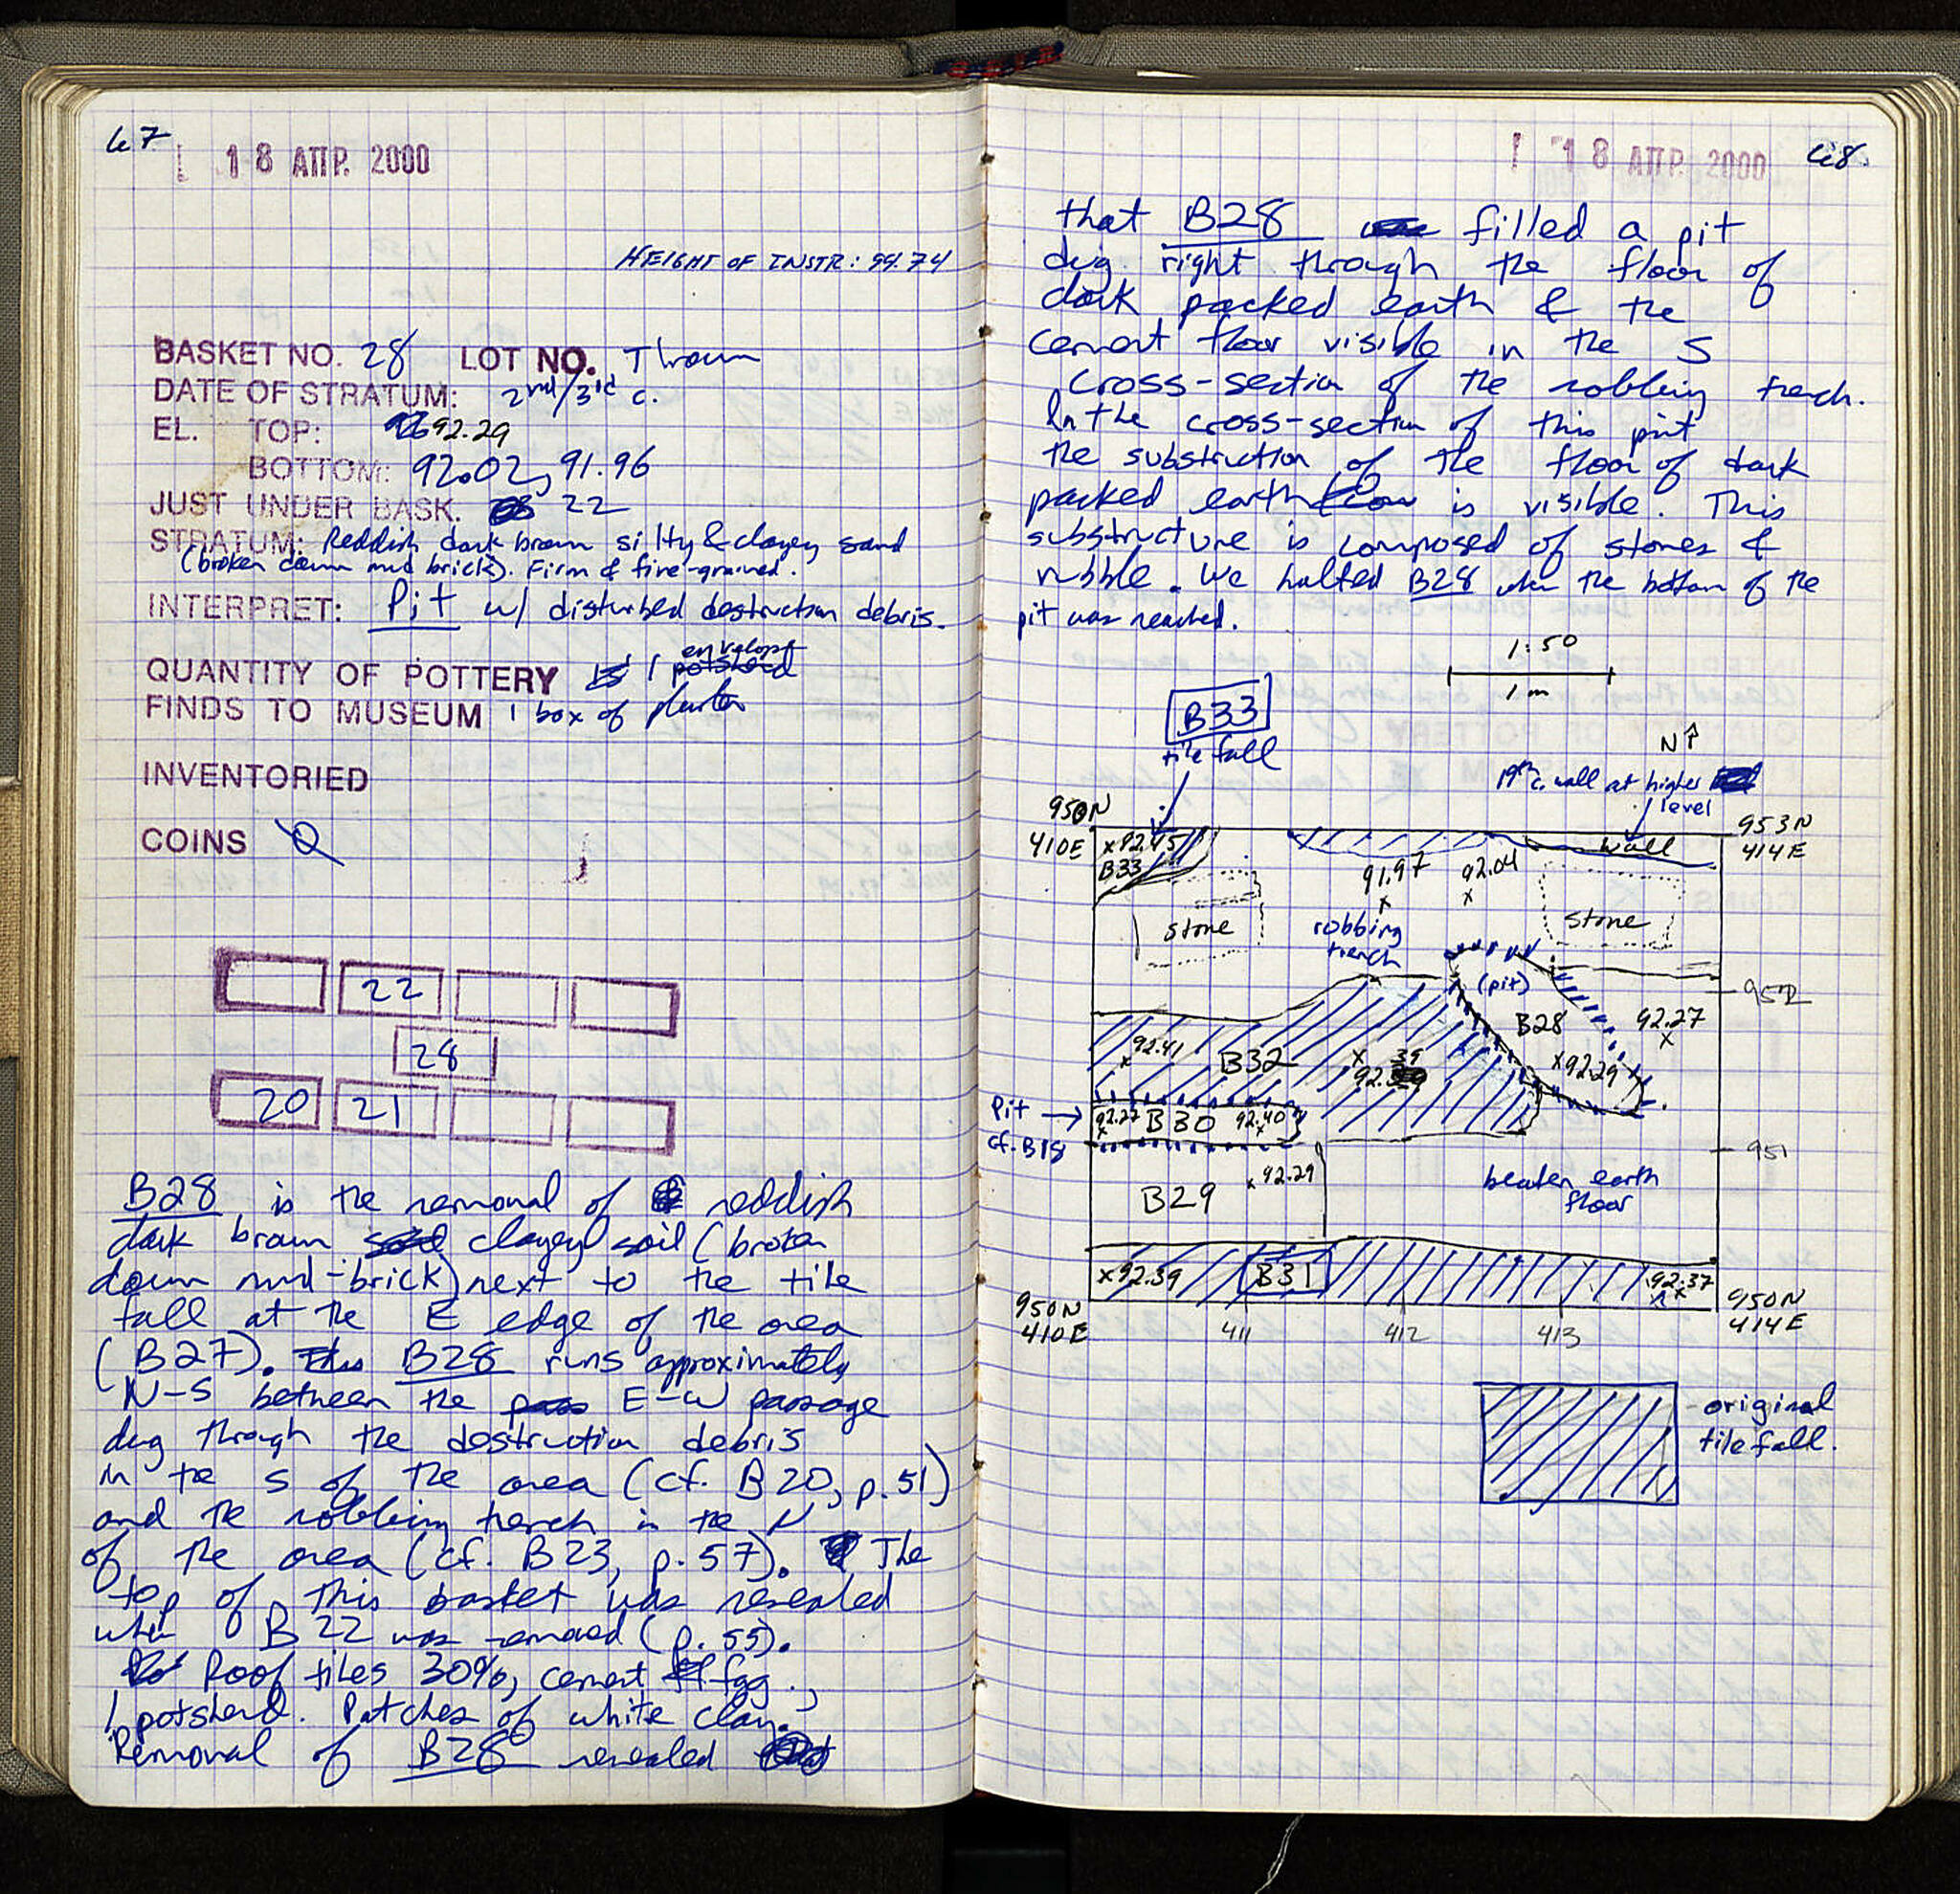 67
18 ΑΠΡ. 2000
HEIGHT OF INSTR: 94.74
BASKET NO. 28 LOT NO. Thrown
DATE OF STRATUM: 2nd/3rd c.
EL. TOP: 92.29
BOTTOM: 92.02, 91.96
JUST UNDER BASK. 22
STRATUM: Reddish dark brown silty & clayey sand
(broken down mud brick). Firm & fine-grained.
INTERPRET: Pit w/ disturbed destruction debris.
envelope
QUANTITY OF POTTERY 1 potsherd
FINDS TO MUSEUM 1 box of plaster
INVENTORIED
COINS
22
28
20 21
B28 is the removal of reddish
dark brown clayey soil (broken
down mud-brick) next to the tile
fall at the E edge of the area
(B27). This B28 runs approximately
N-S between the pass E-W passage
dug through the destruction debris
in the S of the area (cf. B20, p. 51)
and the robbing trench in the N
of the area (cf. B23, p. 57). The
top of this basket was revealed
when B22 was removed (p. 55).
Roof tiles 30%, cement fgg.,
1 potsherd. Patches of white clay.
Removal of B28 revealed
18 ΑΠΡ. 2000
68
that B28 filled a pit
dug right through the floor of
dark packed earth & the
cement floor visible in the S
cross-section of the robbing trench.
In the cross-section of this pit
the substruction of the floor of dark
packed earth is visible. This
substructure is composed of stones &
rubble. We halted B28 when the bottom of the
pit was reached.
1:50
1 m
B33
tile fall
N
19th c. wall at higher
level
950N
410E
953N
414E
x92.45
B33
wall
91.97
x
92.04
x
stone
robbing
trench
stone
(pit)
952
B28
92.27
x
92.41
x
B32
x 39
92.
x92.29
Pit
cf. B18
92.27
x
B30
92.40
x
951
B29
x 92.29
beaten earth
floor
x92.39
B31
92.37
x
950N
410E
411
412
413
950N
414E
- original
tile fall.